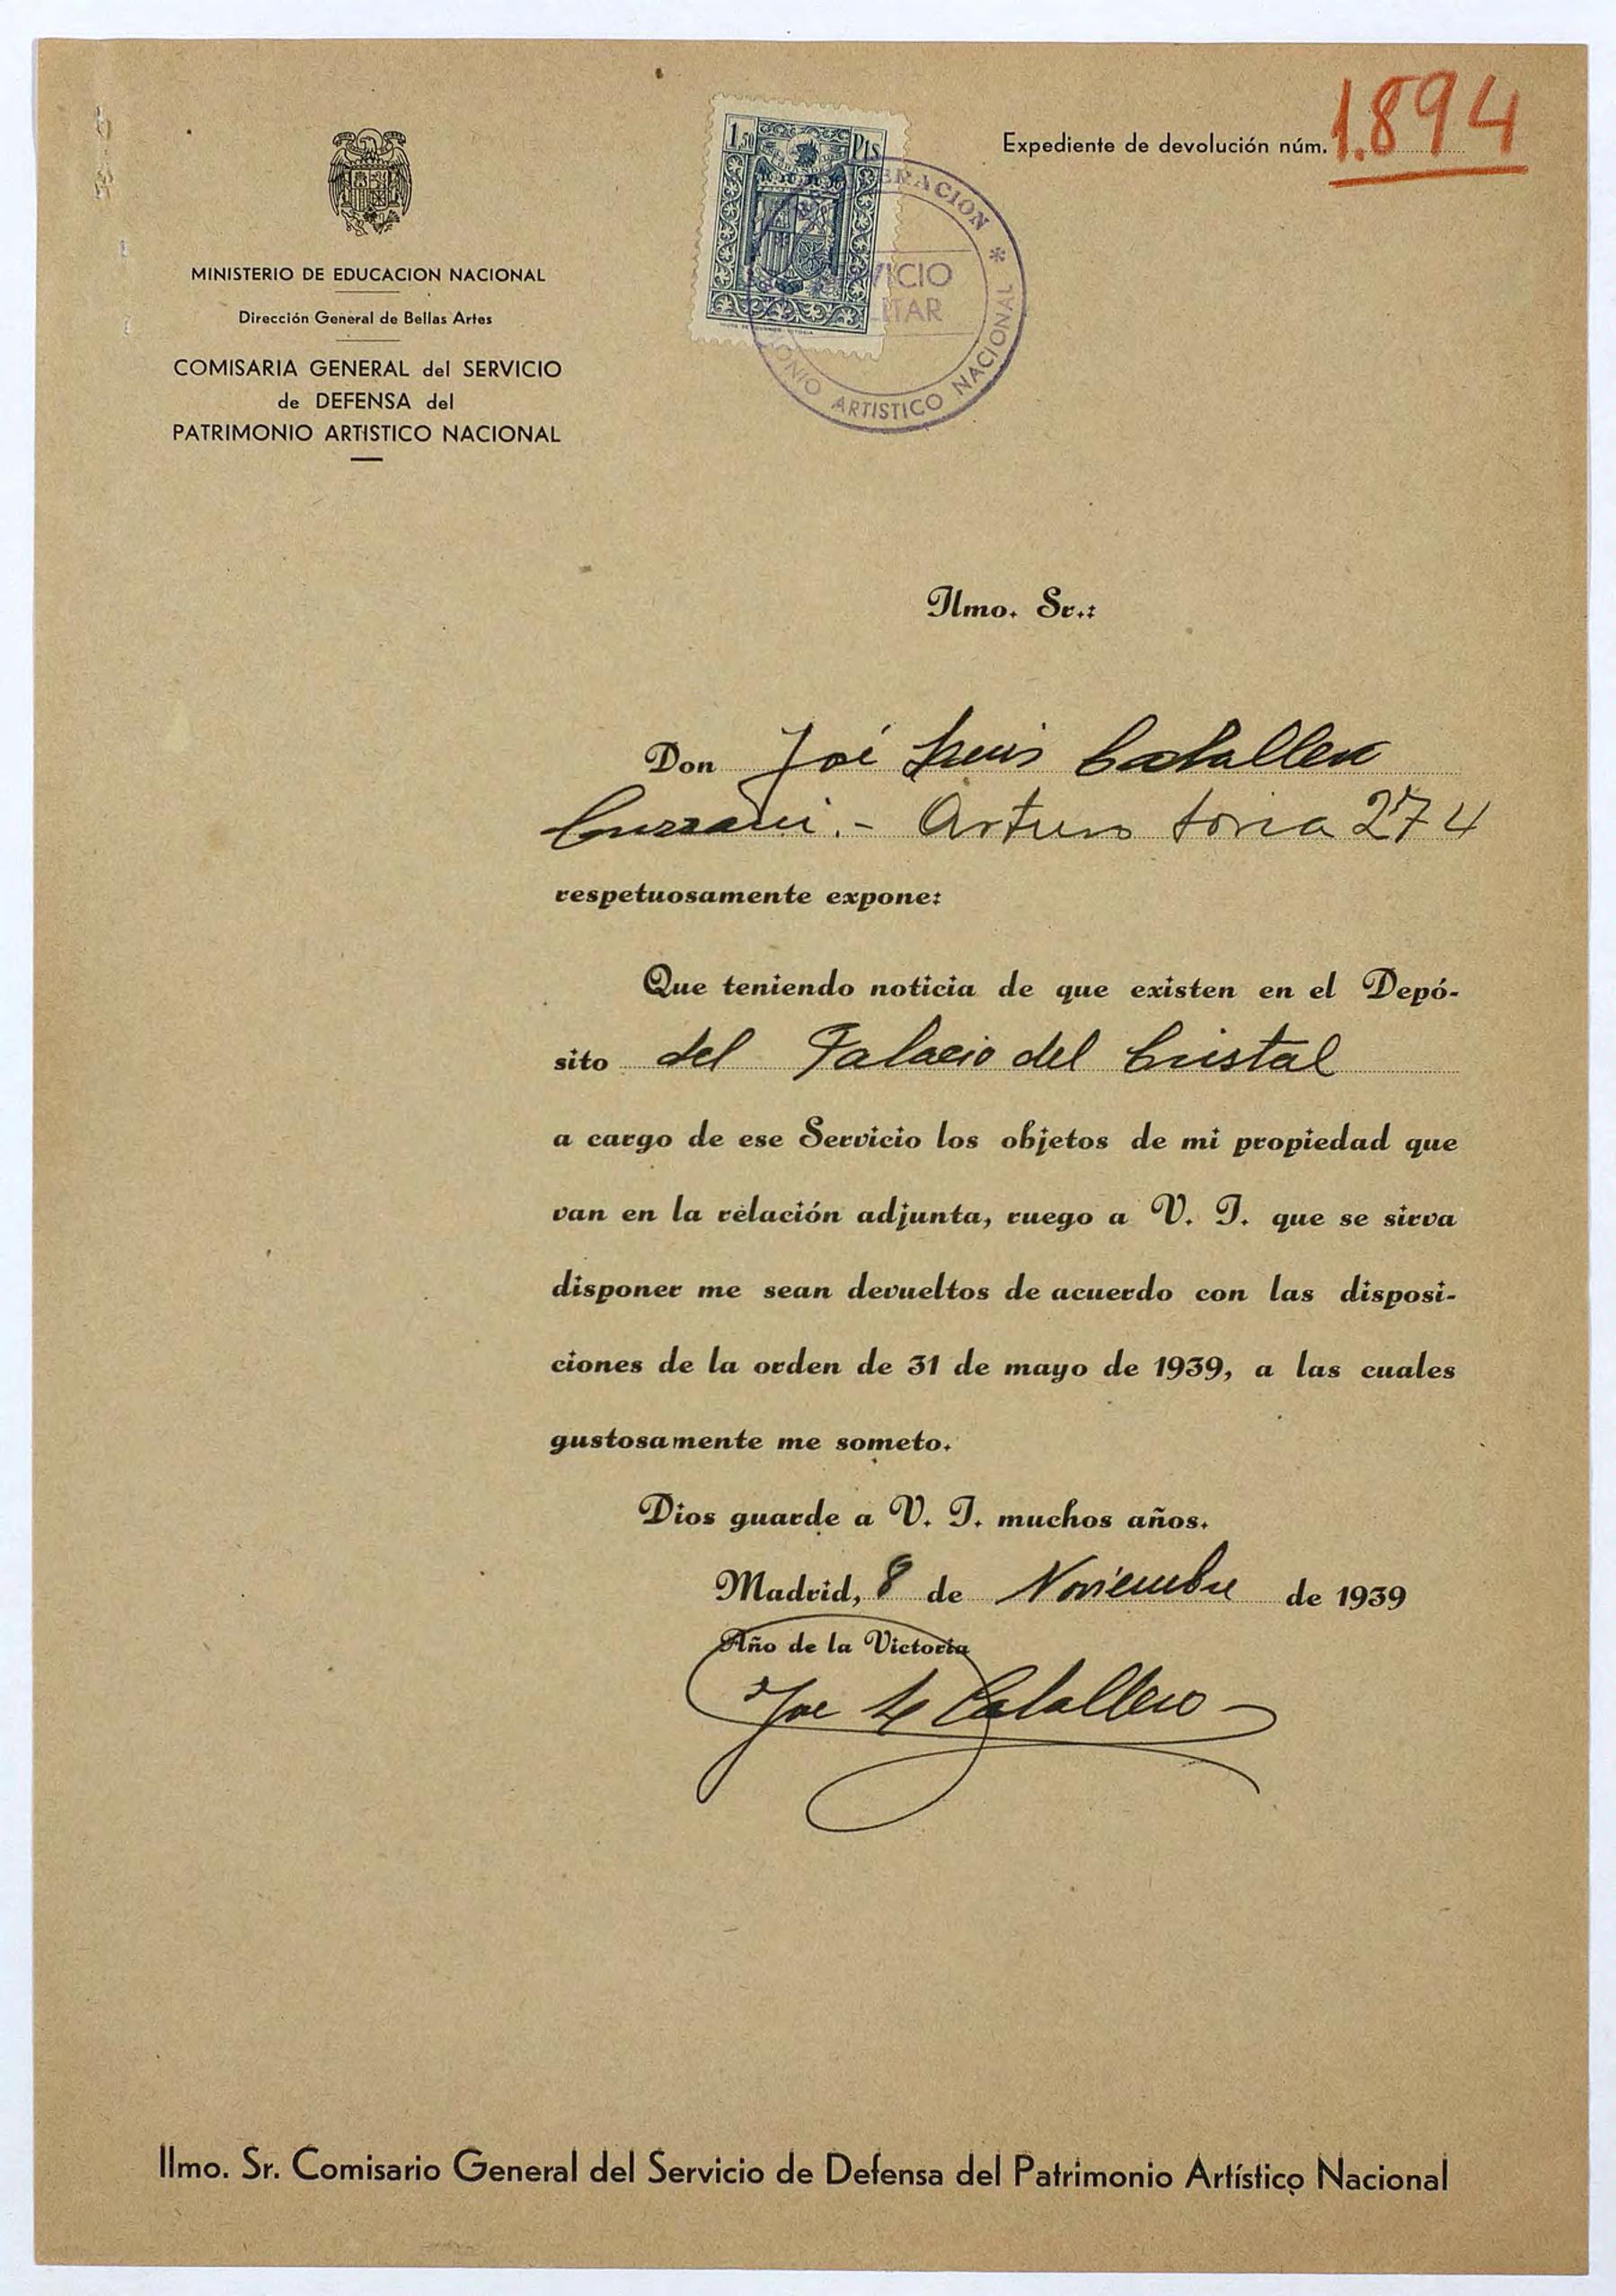 Expediente de devolución núm. 1.894
1,50 Pts
MINISTERIO DE EDUCACION NACIONAL
Dirección General de Bellas Artes
COMISARIA GENERAL del SERVICIO
de DEFENSA del
PATRIMONIO ARTISTICO NACIONAL
ERACION * 
VICIO
LITAR
ONIO ARTISTICO NACIONAL
Ilmo. Sr.:
Don José Luis Caballero
Arturo Soria 274
respetuosamente expone:
Que teniendo noticia de que existen en el Depó-
sito del Palacio del Cristal
a cargo de ese Servicio los objetos de mi propiedad que
van en la relación adjunta, ruego a V. I. que se sirva
disponer me sean devueltos de acuerdo con las disposi-
ciones de la orden de 31 de mayo de 1939, a las cuales
gustosamente me someto.
Dios guarde a V. I. muchos años.
Madrid, 8 de Noviembre de 1939
Año de la Victoria
Jose L Caballero
Ilmo. Sr. Comisario General del Servicio de Defensa del Patrimonio Artístico Nacional